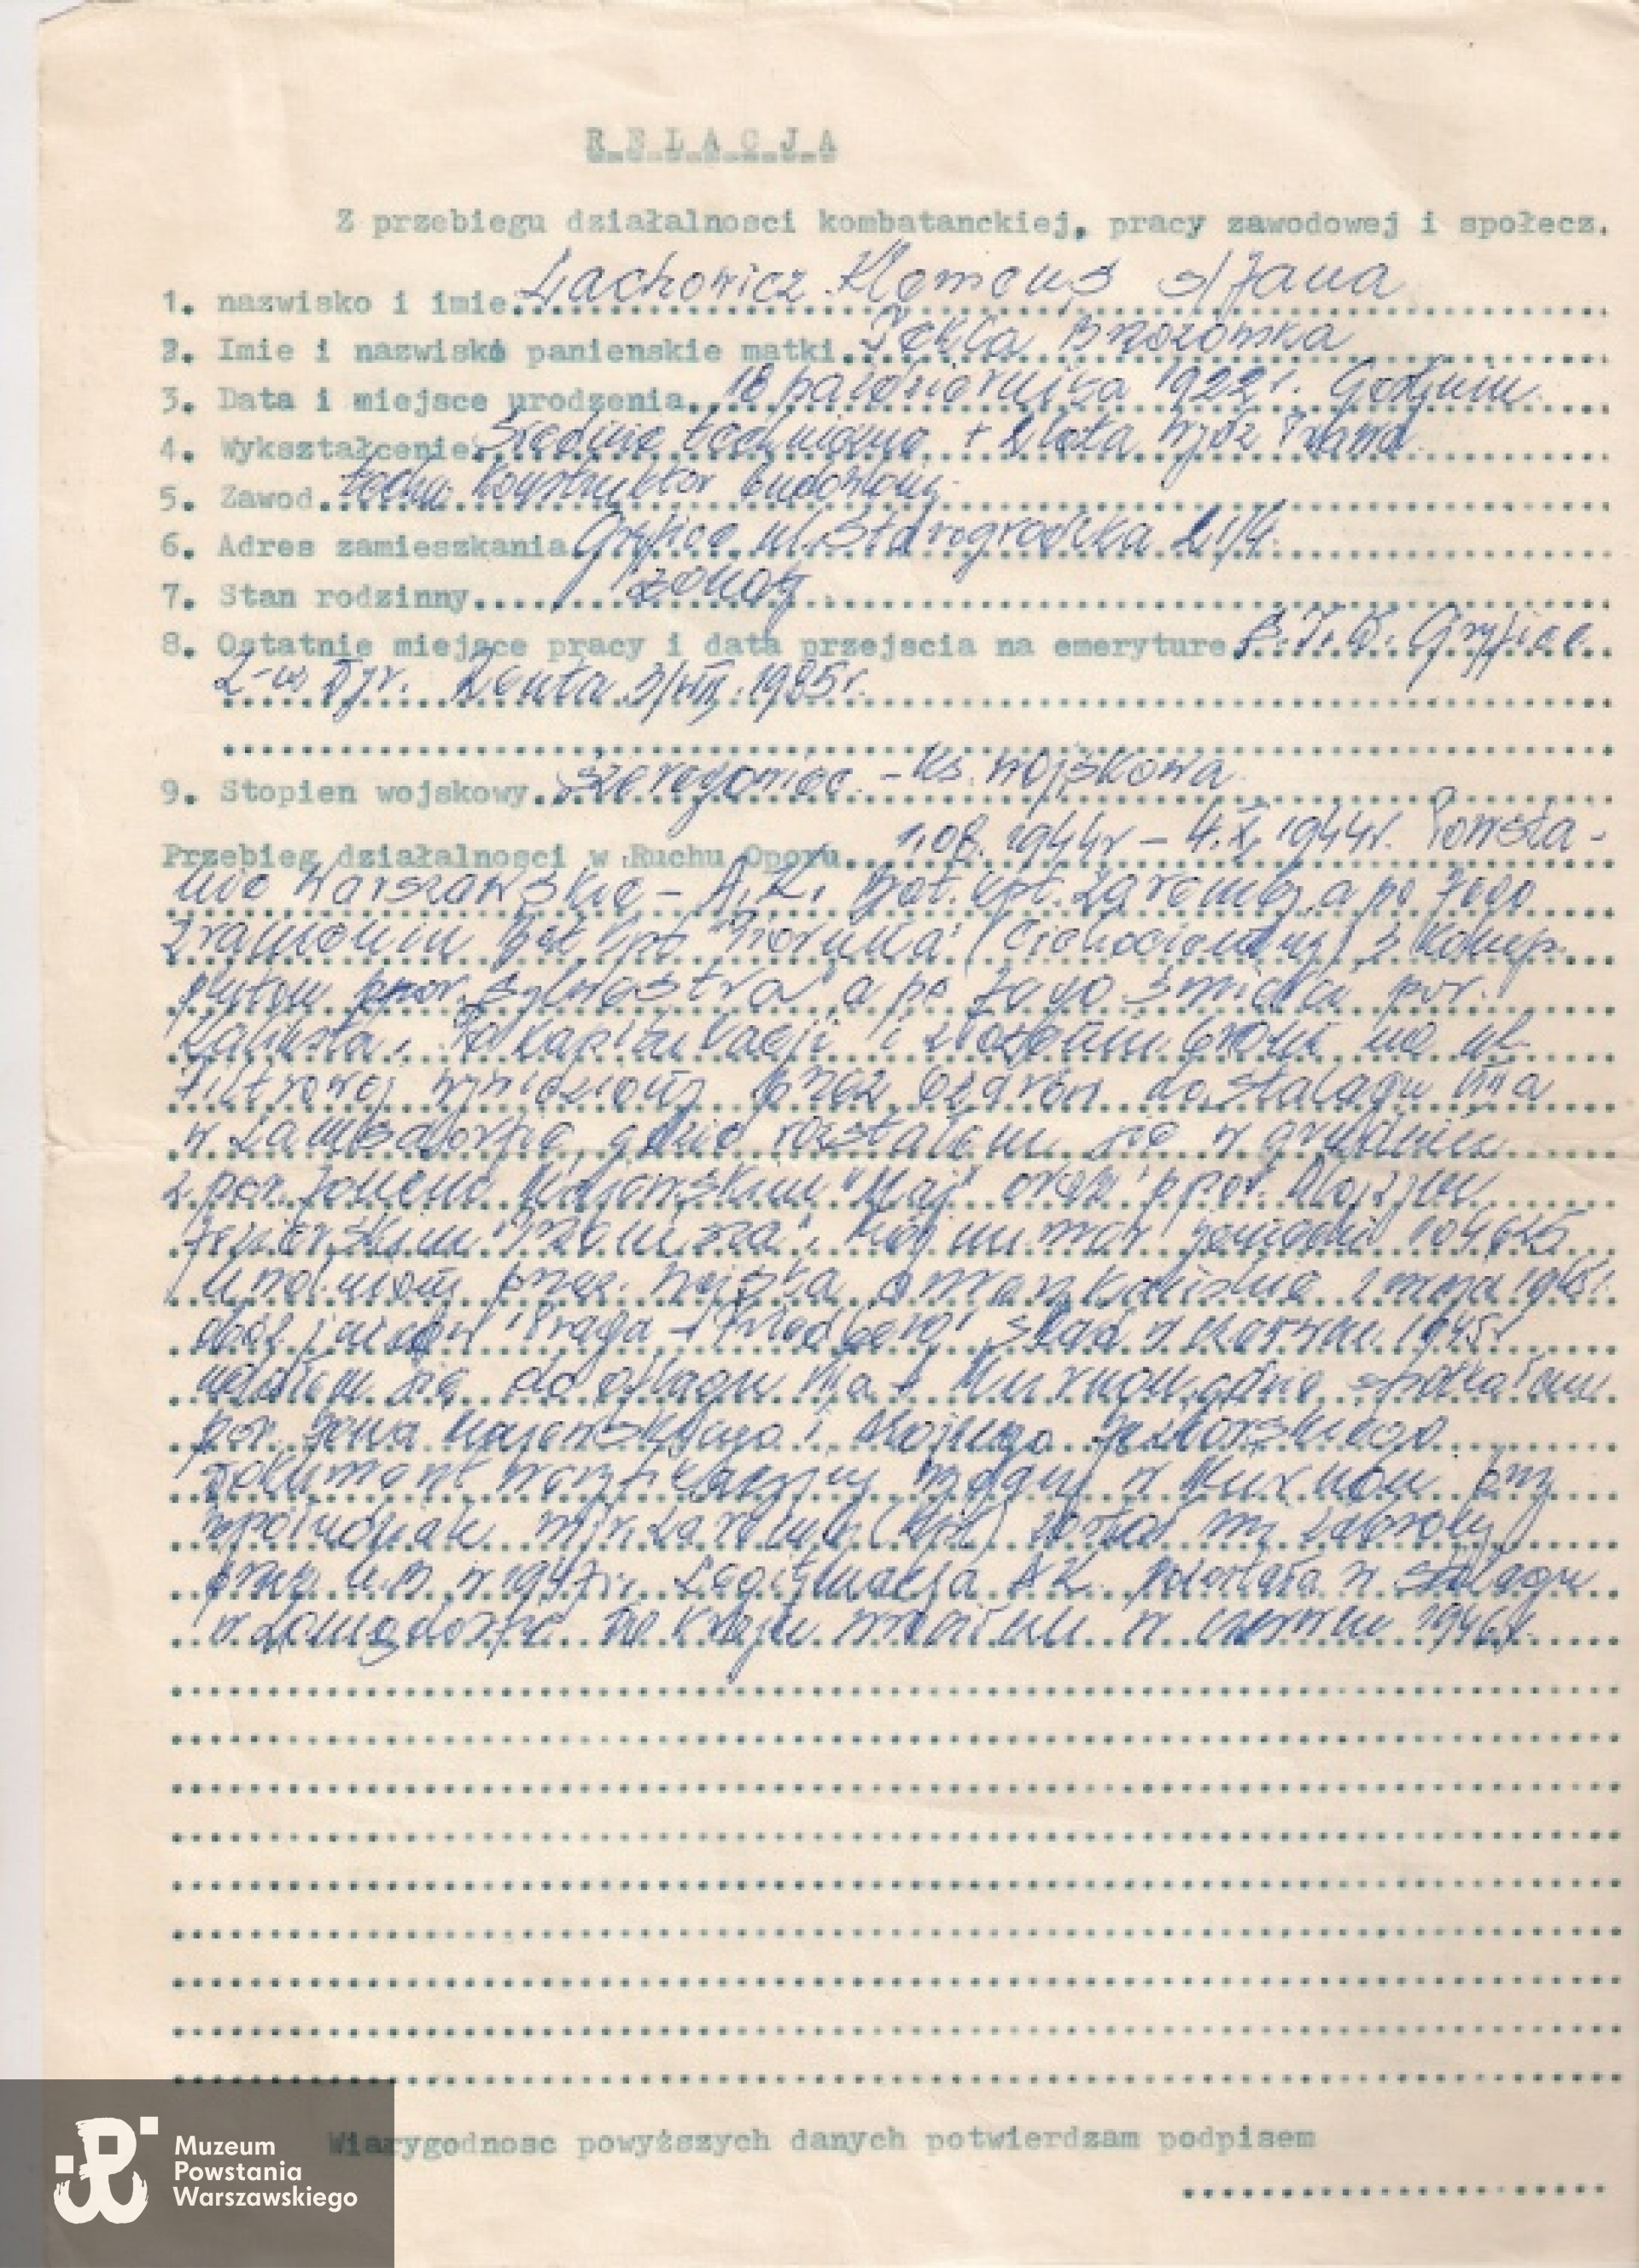 R E L A C J A
Z przebiegu działalnosci kombatanckiej, pracy zawodowej i społecz.
1. nazwisko i imie Lachowicz Klemens s/Jana
2. Imie i nazwisko panienskie matki Tekla Brzozowska
3. Data i miejsce urodzenia 18 października 1922 r.
4. Wykształcenie Średnie techniczne + 2 lata Prawa
5. Zawod techn. konstruktor budowlany
6. Adres zamieszkania Gryfice ul. Starogrodzka 21/4
7. Stan rodzinny żonaty
8. Ostatnie miejsce pracy i data przejscia na emeryture Gryfice
Renta 3/VII. 1985 r.
9. Stopien wojskowy szeregowiec - ks. wojskowa
Przebieg działalnosci w Ruchu Oporu 1.08.1944 r - 4.X.1944 r. Powsta-
nie Warszawskie - A.K. Bat. kpt. Zaremby a po Jego
zranieniu Bat kpt. Pioruna (Cichociemny) 3 komp.
pluton por. Sylwestra a po Jego śmierci por.
Kaliksta. Po kapitulacji i złożeniu broni na ul.
Filtrowej wywieziony przez Ożarów do stalagu
w Lamsdorfie, gdzie rozstałem się w grudniu
z por. Janem Kajewskim "Maj" oraz ppor. Alojzym
Mój numer jeniecki 104625
przez wojska amerykańskie 2 maja 1945 r.
obóz jeńców "Praga - Friedberg" skąd w czerwcu 1945 r
udałem się do oflagu VII a Murnau, gdzie spotkałem
por. Jana Kajewskiego i Alojzego
Dokument weryfikacyjny wydany w Murnau przy
współudziale mjr. Zaremby (kpt) został mi zabrany
przez U.B w 1947 r. Legitymacja AK w stalagu
w Lamsdorfie Do kraju wróciłem w czerwcu 1946 r.
Wiarygodnosc powyższych danych potwierdzam podpisem
Muzeum
Powstania
Warszawskiego